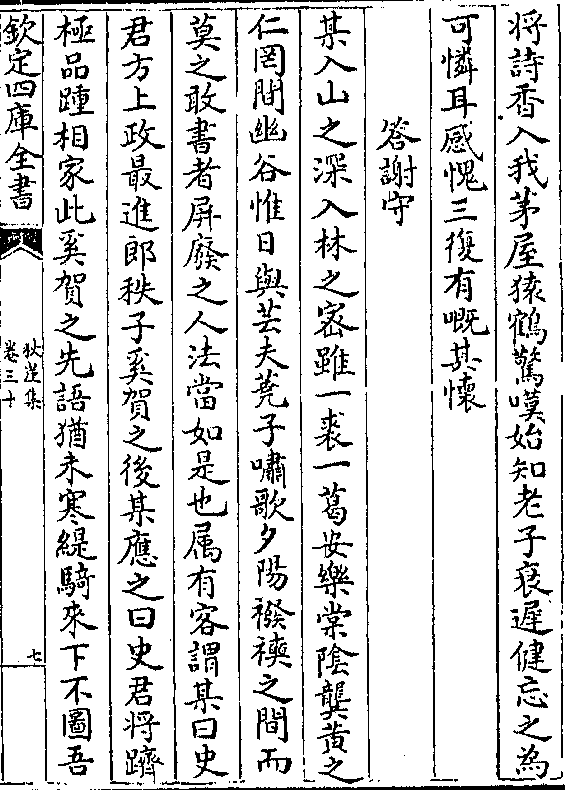 将詩香入我茅屋猿鶴驚嘆始知老子衰遲健忘之為
可憐耳感愧三復有嘅其懷
答謝守
某入山之深入林之宻雖一裘一葛安樂棠陰龔黄之
仁罔間幽谷惟日與芸夫蕘子嘯歌夕陽襏襫之間而
莫之敢書者屏廢之人法當如是也属有客謂某曰史
君方上政最進郎秩子奚賀之後某應之曰史君將躋
極品踵相家此奚賀之先語猶未寒緹騎來下不圖吾
欽定四庫全書
卷三十
七